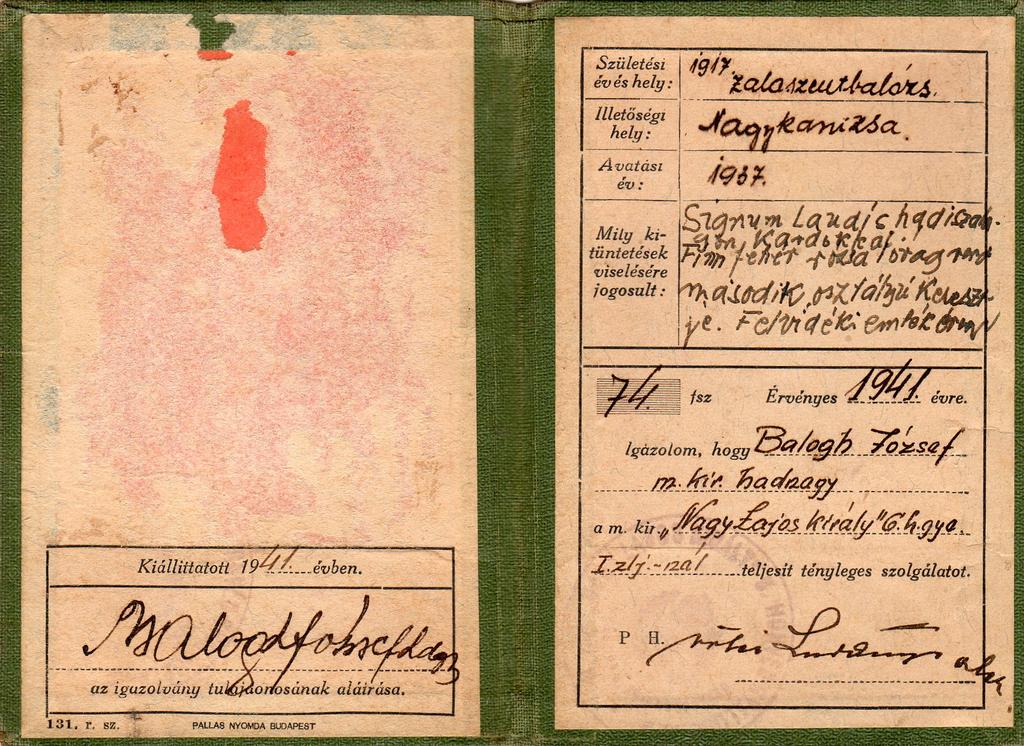 Kiállíttatott 1941. évben.
az igazolvány tulajdonosának aláírása.
131. r. sz.
PALLAS NYOMDA BUDAPEST
Születési év és hely: 1917. Zalaszentbalázs.
Illetőségi hely: Nagykanizsa.
Avatási év: 1937.
Mily kitüntetések viselésére jogosult:
Signum Laudis hadiszala-
gon, Kardokkal.
Finn fehér rózsa lovag rend
második osztályú Kereszt-
je. Felvidéki emlék érem
74. fsz Érvényes 1941. évre.
Igazolom, hogy Balogh József
m. kir. hadnagy
a m. kir. "Nagy Lajos király" 6. h. gye.
I. zlj.-nál teljesít tényleges szolgálatot.
P H.